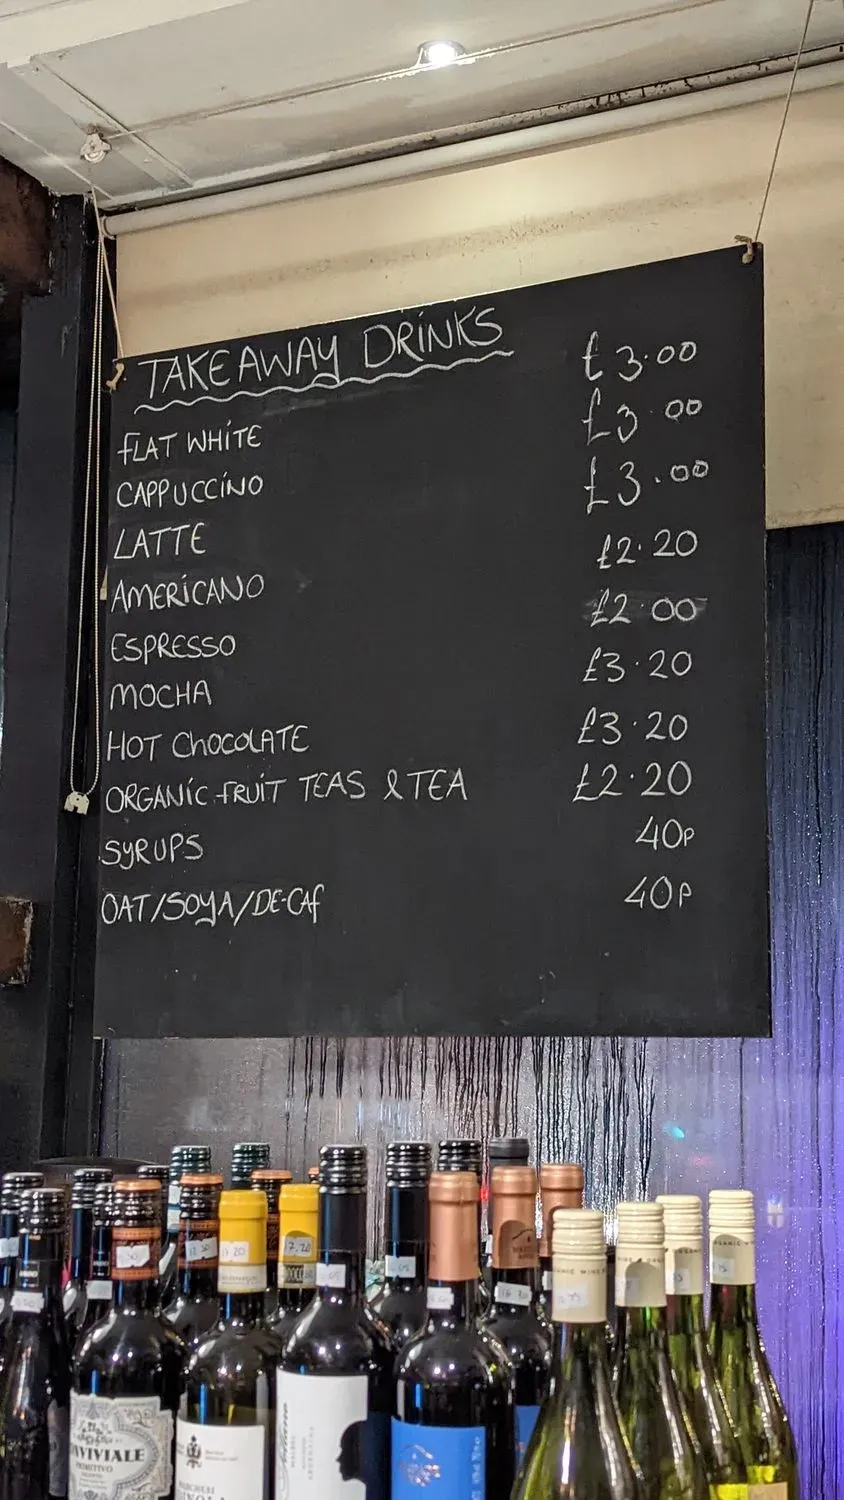 TAKEAWAY DRINKS
FLAT WHITE £3.00
CAPPUCCINO £3.00
LATTE £3.00
AMERICANO £2.20
ESPRESSO £2.00
MOCHA £3.20
HOT CHOCOLATE £3.20
ORGANIC FRUIT TEAS & TEA £2.20
SYRUPS 40P
OAT/SOYA/DE-CAF 40P
PRIMITIVO